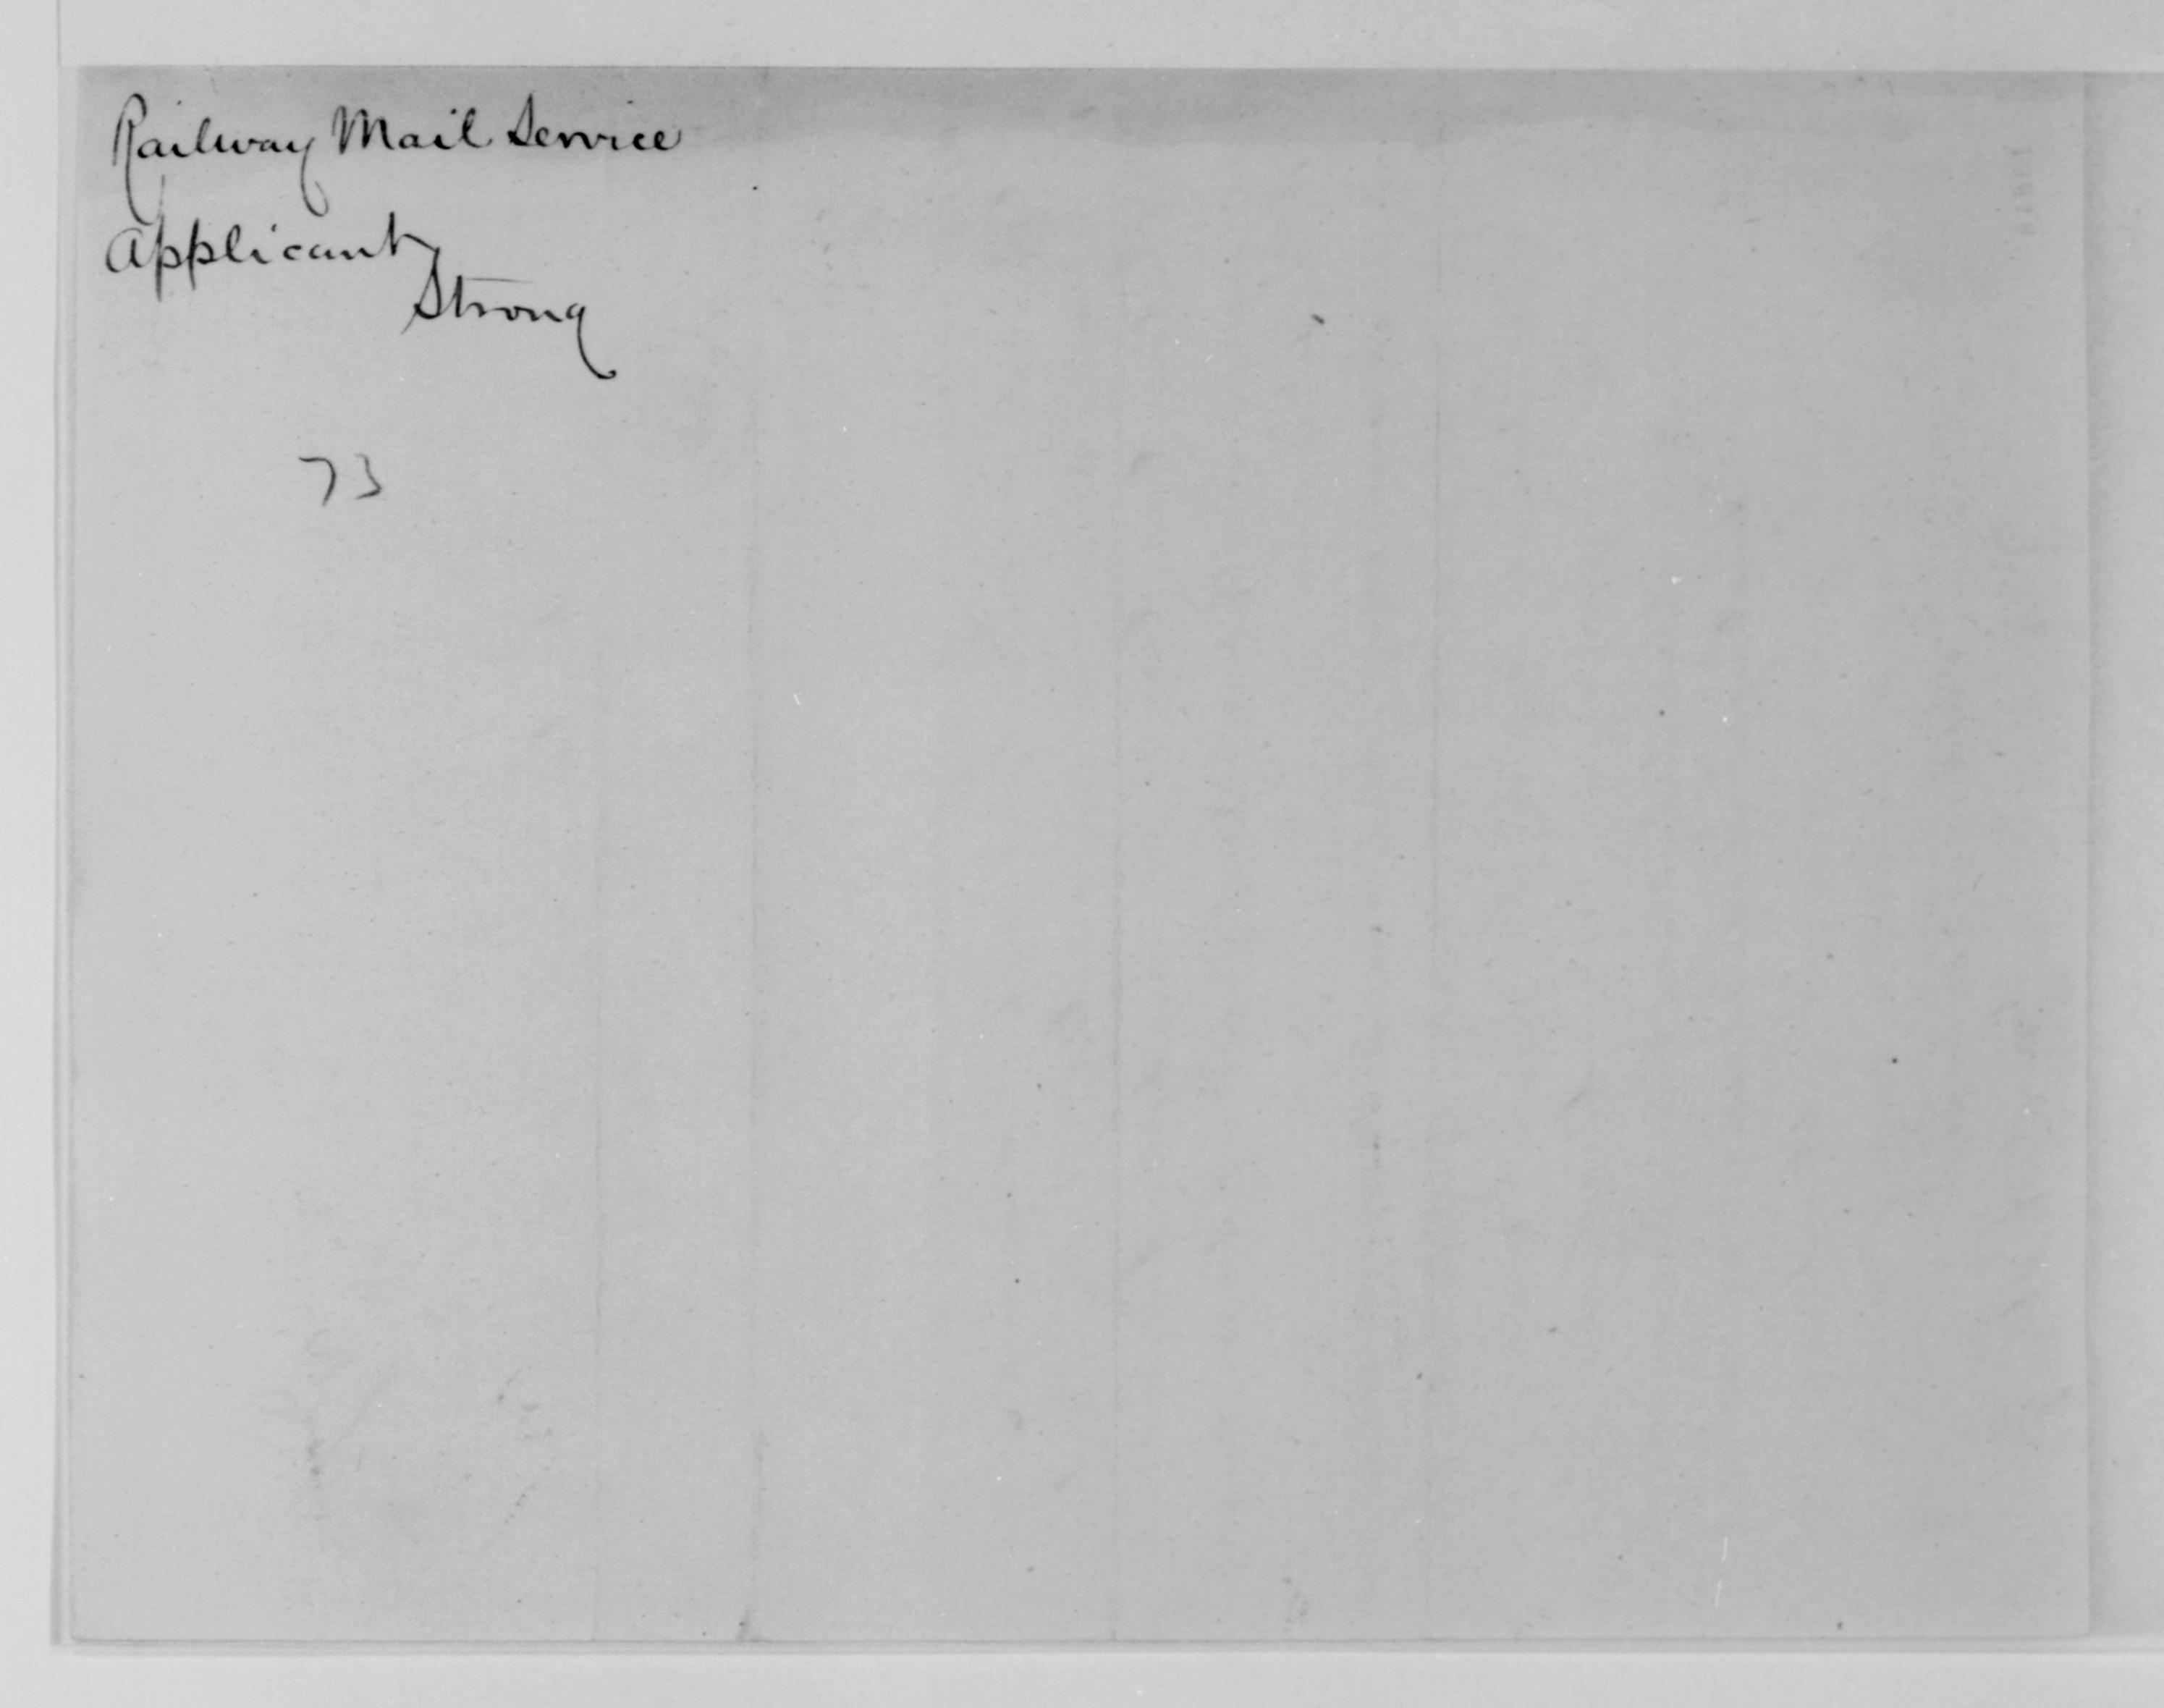 Railway Mail Service
Applicant
Strong
73